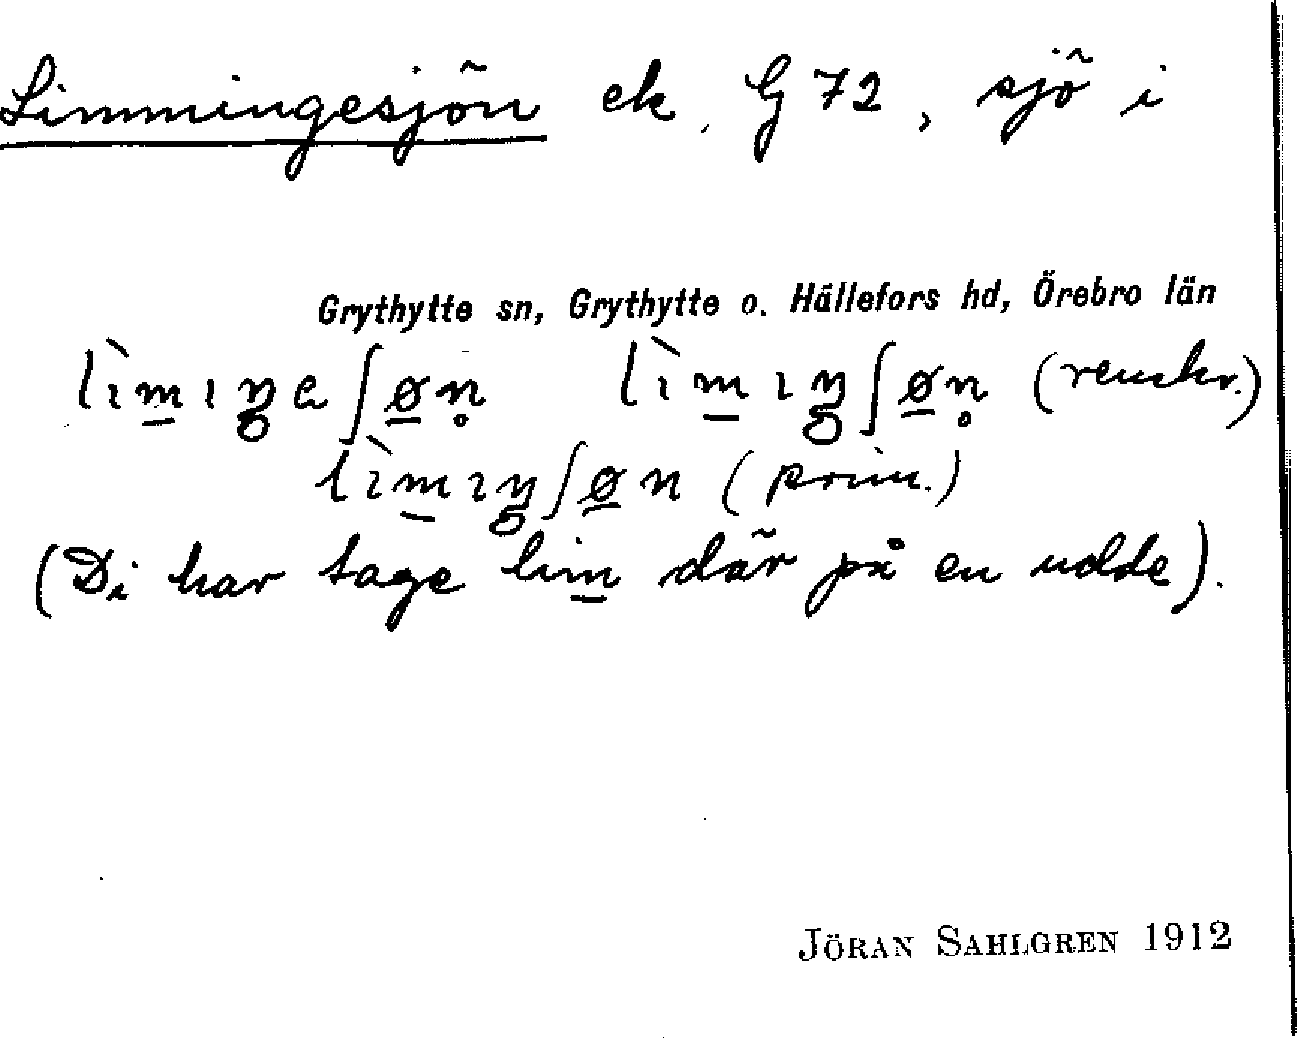 Limmingesjön ek. G 72, sjö i
Grythytte sn, Grythytte o. Hällefors hd, Örebro län
lìmıŋeʃøn̥ lìmıŋʃøn̥ (renskr.)
lìmıŋʃøn (prim.)
(Di har tage lim där på en udde).
JÖRAN SAHLGREN 1912